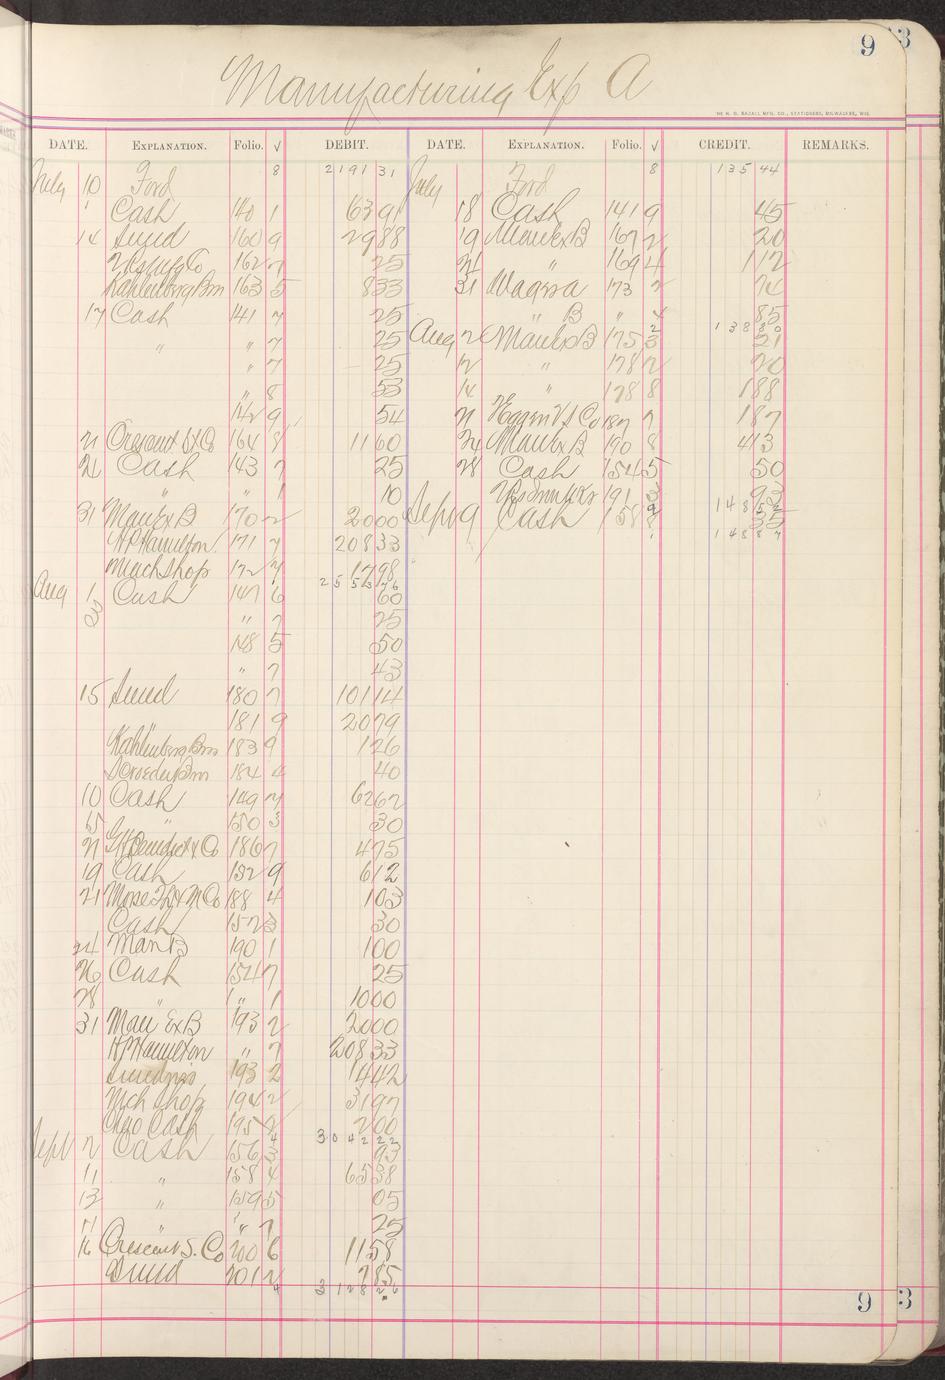 9
3
Manufacturing Exp A
THE H. G. RAZALL MFG. CO., STATIONERS, MILWAUKEE, WIS.
DATE. EXPLANATION. Folio. √ DEBIT. DATE. EXPLANATION. Folio. √ CREDIT. REMARKS.
July 10 Ford 8 2191 31 July Ford 8 135 44
" Cash 140 1 63 91 18 Cash 141 9 45
14 Sund 160 9 29 88 19 Man Ex B 167 2 20
162 7 25 21 " 169 4 1 12
Kahlenberg Bros 163 5 8 33 31 Wages a 173 2 24
17 Cash 141 7 25 " B " 4 85
138 30
" " 7 25 Aug 2 Man Ex B 175 3 21
" 7 25 12 " 178 2 20
" 8 53 14 " 178 8 1 88
142 9 54 21 Eggers V S Co 187 7 1 87
21 Crescent S Co 164 8 11 60 24 Man Ex B 190 8 4 13
21 Cash 143 7 25 28 Cash 154 5 50
" " 1 10 191 3 93
148 52
31 Man Ex B 170 2 20 00 Sept 9 Cash 158 8 35
148 87
H P Hamilton 171 7 208 33
Mach Shop 172 7 17 98
2553 76
Aug 1 Cash 147 6 60
3 " 7 25
148 5 50
" 7 43
15 Sund 180 7 101 14
181 9 20 79
Kahlenberg Bros 183 9 1 26
Schroeder Bros 184 4 40
10 Cash 149 7 62 62
15 " 150 3 30
21 186 7 4 75
19 Cash 152 9 6 12
21 Morse & M Co 188 4 1 03
Cash 152 3 30
24 Man B 190 1 1 00
26 Cash 154 7 25
28 " " 1 10 00
31 Man Ex B 193 2 20 00
H P Hamilton " 7 208 33
Sundries 193 2 14 42
Mch Shop 194 2 31 97
Cash 195 2 2 00
3042 22
Sept 2 Cash 156 3 93
11 " 158 4 65 38
12 " 159 5 05
" " " 7 25
16 Crescent S. Co 200 6 11 58
Sund 201 2 7 85
3128 26
9
3